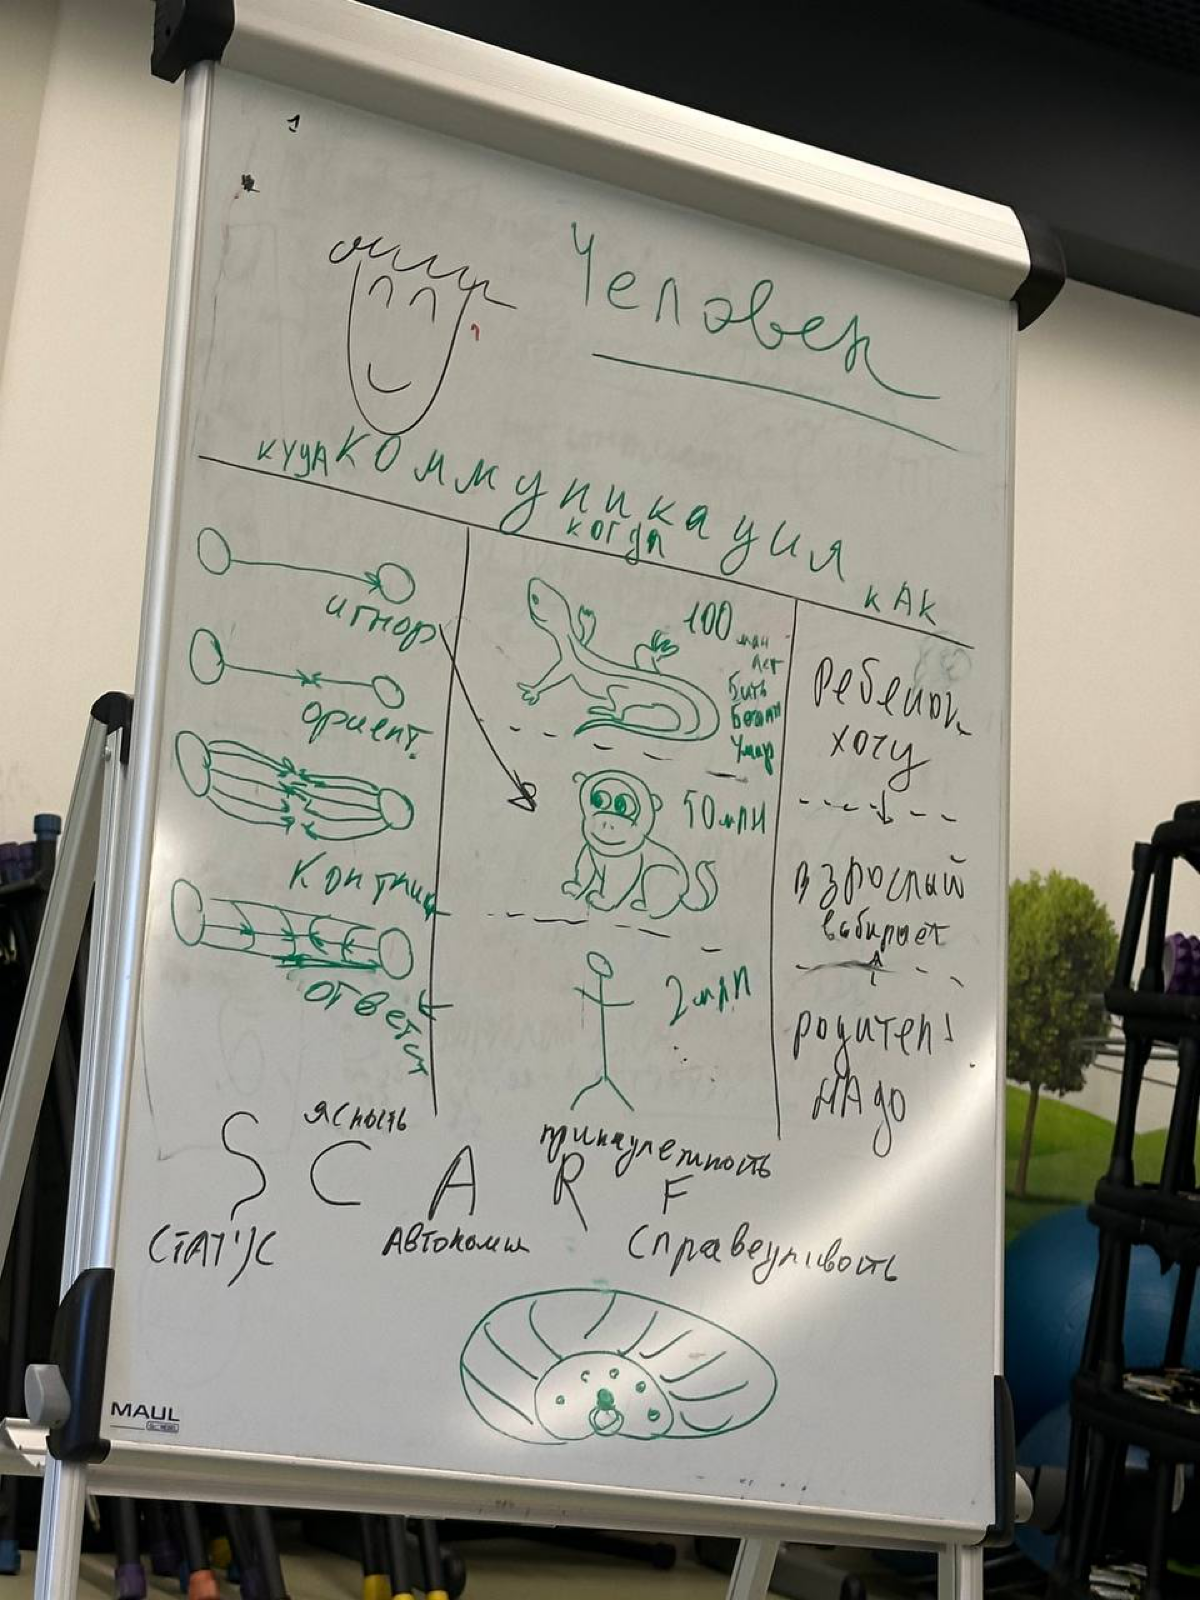 Человек
куда Коммуникация
когда
как
игнор
ориент.
ответ
100 млн
лет
Бить
Бежать
Умир
50 млн
2 млн
Ребенок
хочу
взрослый
выбирает
родитель
надо
ясность
S C A R F
статус
Автономия
справедливость
MAUL